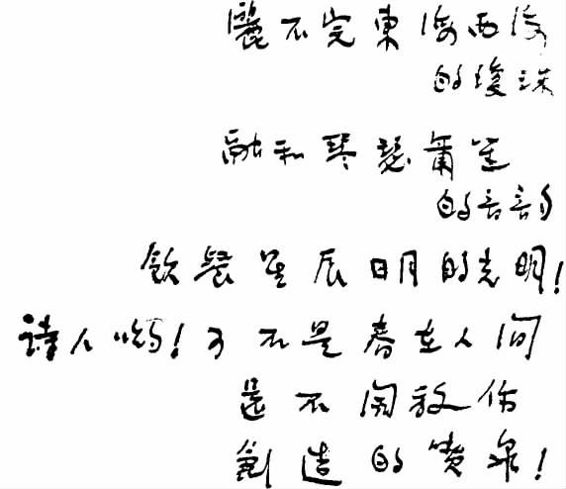 灑不完東海西海
的瓊珠
融和琴瑟簫笙
的音韵
飲餐星辰日月的光明!
詩人喲!可不是春在人间
還不開放你
創造的噴泉!